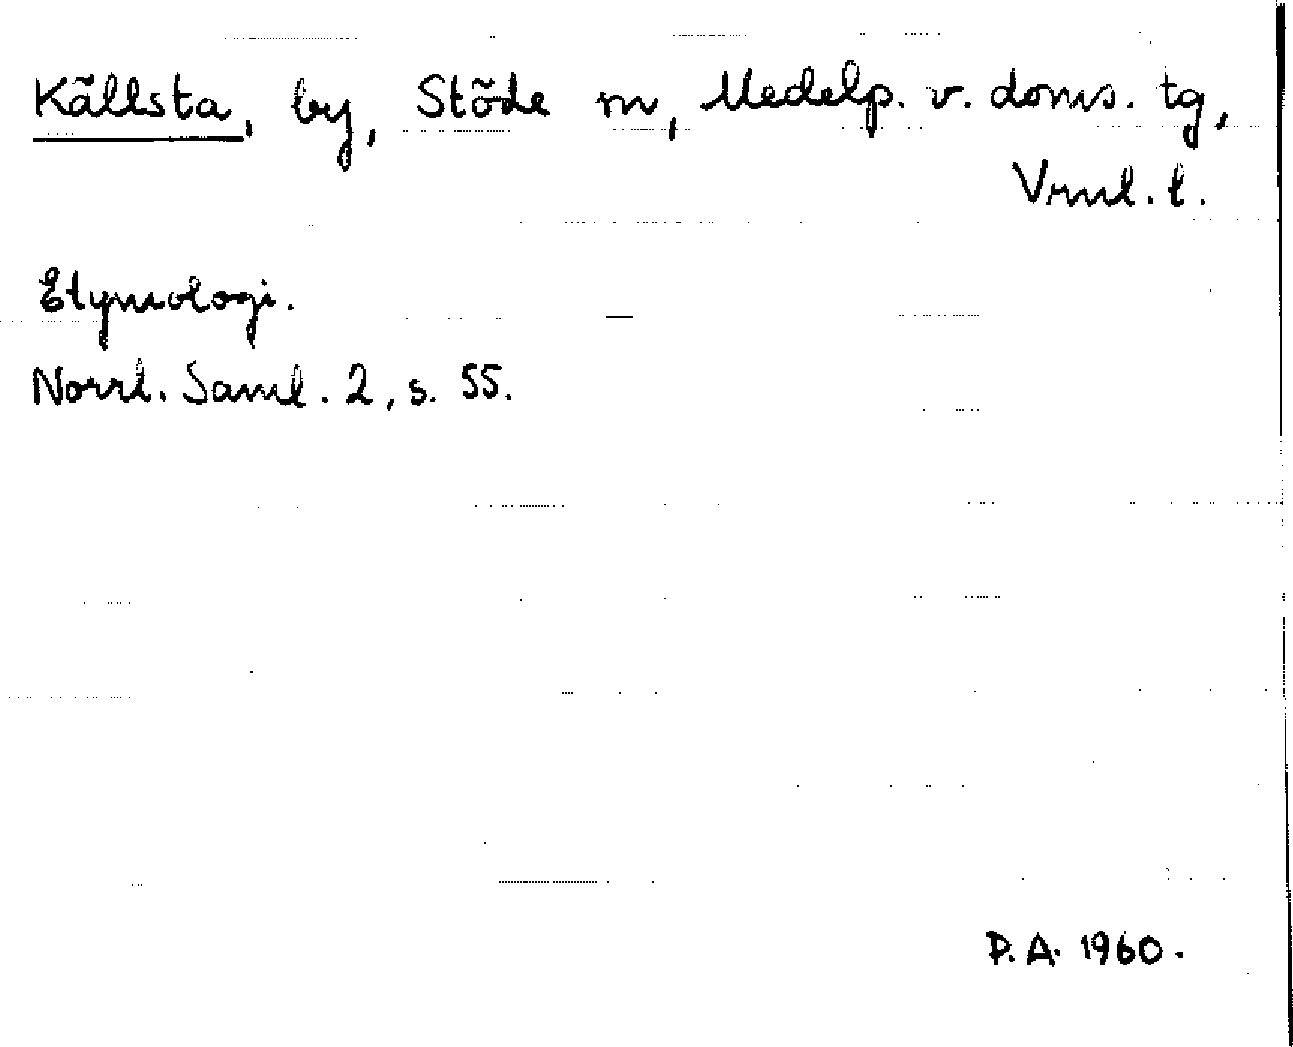 Källsta, by, Stöde sn, Medelp. v. doms. tg,
Vrnl. l.
Etymologi.
Norrl. Saml. 2, s. 55.
P.A. 1960.